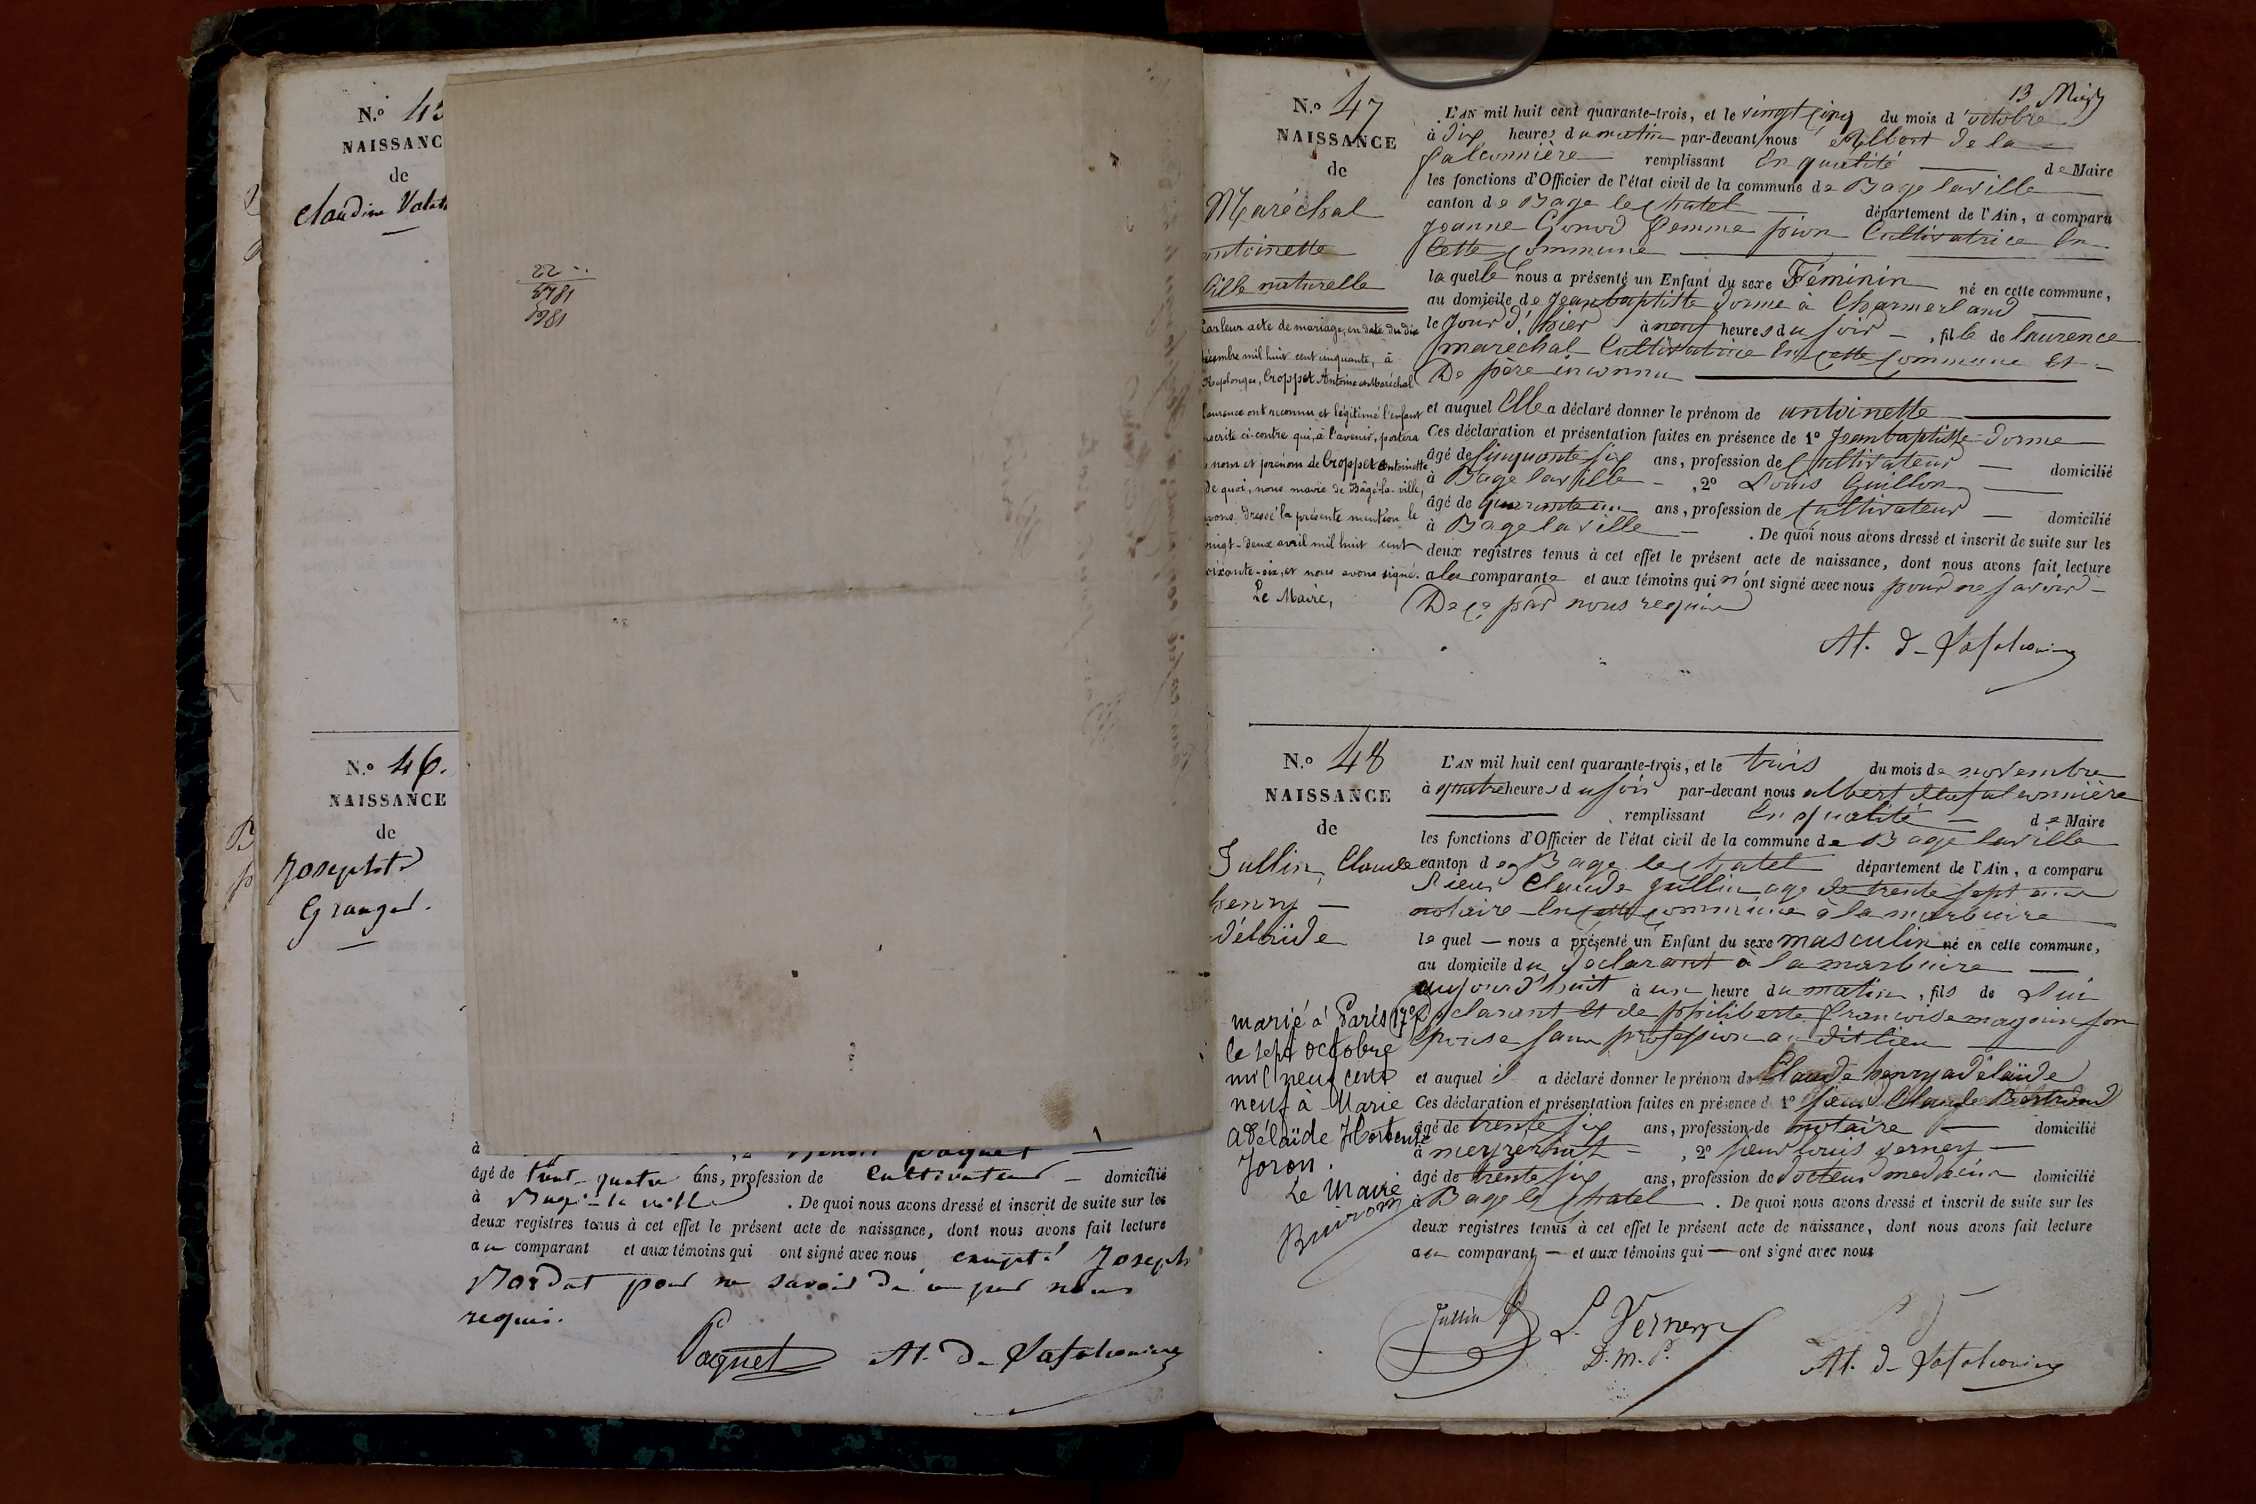 N.o 45
NAISSANC
de
Claudine
N.o 46.
NAISSANCE
de
Granger
22
5781
1381
à
âgé de trent-quatre ans, profession de Cultivateur — domicilié
à Bagé-la ville . De quoi nous avons dressé et inscrit de suite sur les
deux registres tenus à cet effet le présent acte de naissance, dont nous avons fait lecture
au comparant et aux témoins qui ont signé avec nous excepté Joseph
pour ne savoir de ce par nous
requis.
Paquet
13
N.o 47
NAISSANCE
de
Maréchal
antoinette
fille naturelle
Par leur acte de mariage, en date du dix
décembre mil huit cent cinquante, à
Replonges, Croppet Antoine et Maréchal
Laurence ont reconnu et légitimé l'enfant
inscrite ci-contre qui, à l'avenir, portera
nom et prénom de Croppet Antoinette
De quoi, nous maire de Bâgé-la-ville,
avons dressé la présente mention le
vingt-deux avril mil huit cent
soixante-six, et nous avons signé.
Le Maire,
L'AN mil huit cent quarante-trois, et le vingt cinq du mois d'octobre
à dix heures du matin par-devant nous Albert de la
falconnière remplissant En qualité — de Maire
les fonctions d'Officier de l'état civil de la commune de Bage laville
canton de Bage le Chatel — département de l'Ain, a comparu
Jeanne Gonod femme pion Cultivatrice En
Cette Commune
la quelle nous a présenté un Enfant du sexe Féminin né en cette commune,
au domicile de Jean baptiste dorme à Charmerland
le Jour d'hier à neuf heures du soir — , fille de laurence
maréchal Cultivatrice En Cette Commune Et -
De père inconnu
et auquel Elle a déclaré donner le prénom de antoinette
Ces déclaration et présentation faites en présence de 1o Jean baptiste dorme
âgé de Cinquante six ans, profession de Cultivateur — domicilié
à Bage laville - , 2o Louis Guillon
âgé de quarante un ans, profession de Cultivateur — domicilié
à Bage laville - . De quoi nous avons dressé et inscrit de suite sur les
deux registres tenus à cet effet le présent acte de naissance, dont nous avons fait lecture
à la comparante et aux témoins qui n'ont signé avec nous pour ne savoir -
De ce par nous requis
At. d- Lafalconière
N.o 48
NAISSANCE
de
Jullin, Claude
henry —
adélaïde
marié à Paris 17e
le sept octobre
mil neuf cent
neuf à Marie
Adélaïde Hortense
Joron.
Le Maire
L'AN mil huit cent quarante-trois, et le trois du mois de novembre
à quatre heures du soir par-devant nous albert delafalconnière
remplissant En qualité — de Maire
les fonctions d'Officier de l'état civil de la commune de Bage laville
canton de Bage le Chatel département de l'Ain, a comparu
Sieur Claude Jullin age de trente sept ans
notaire En cette Commune à la marbuire
le quel — nous a présenté un Enfant du sexe masculin né en cette commune,
au domicile du declarant à la marbuire —
aujourd'huit à un heure du matin, fils de Lui
declarant et de philiberte francoise magnin son
Epouse sans profession au dit lieu
et auquel il a déclaré donner le prénom de Claude henry adélaïde
Ces déclaration et présentation faites en présence de 1o sieur Claude Bertrand
âgé de trente six ans, profession de notaire — domicilié
à meyzeriat - , 2o sieur louis verney —
âgé de trente six ans, profession de docteur medecin domicilié
à Bage le Chatel . De quoi nous avons dressé et inscrit de suite sur les
deux registres tenus à cet effet le présent acte de naissance, dont nous avons fait lecture
au comparant — et aux témoins qui — ont signé avec nous
Jullin
L. Verney
D. M. P.
At. d- Lafalconière